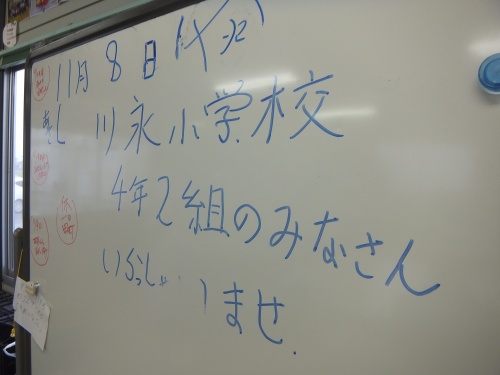 11月8日(火)
川永小学校
4年2組のみなさん
いらっしゃいませ.